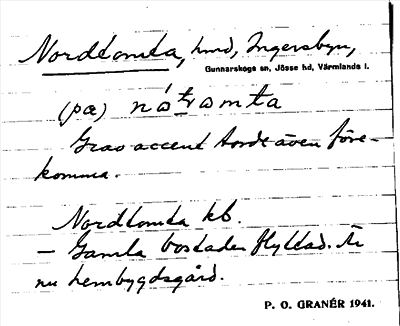 Nordtomta, hmd, Ingersbyn,
Gunnarskogs sn, Jösse hd, Värmlands l.
(pæ) nó̱tramta
Grav accent torde även före-
komma.
Nordtomta kb.
– Gamla bostaden flyttad. Är
nu hembygdsgård.
P. O. GRANÉR 1941.